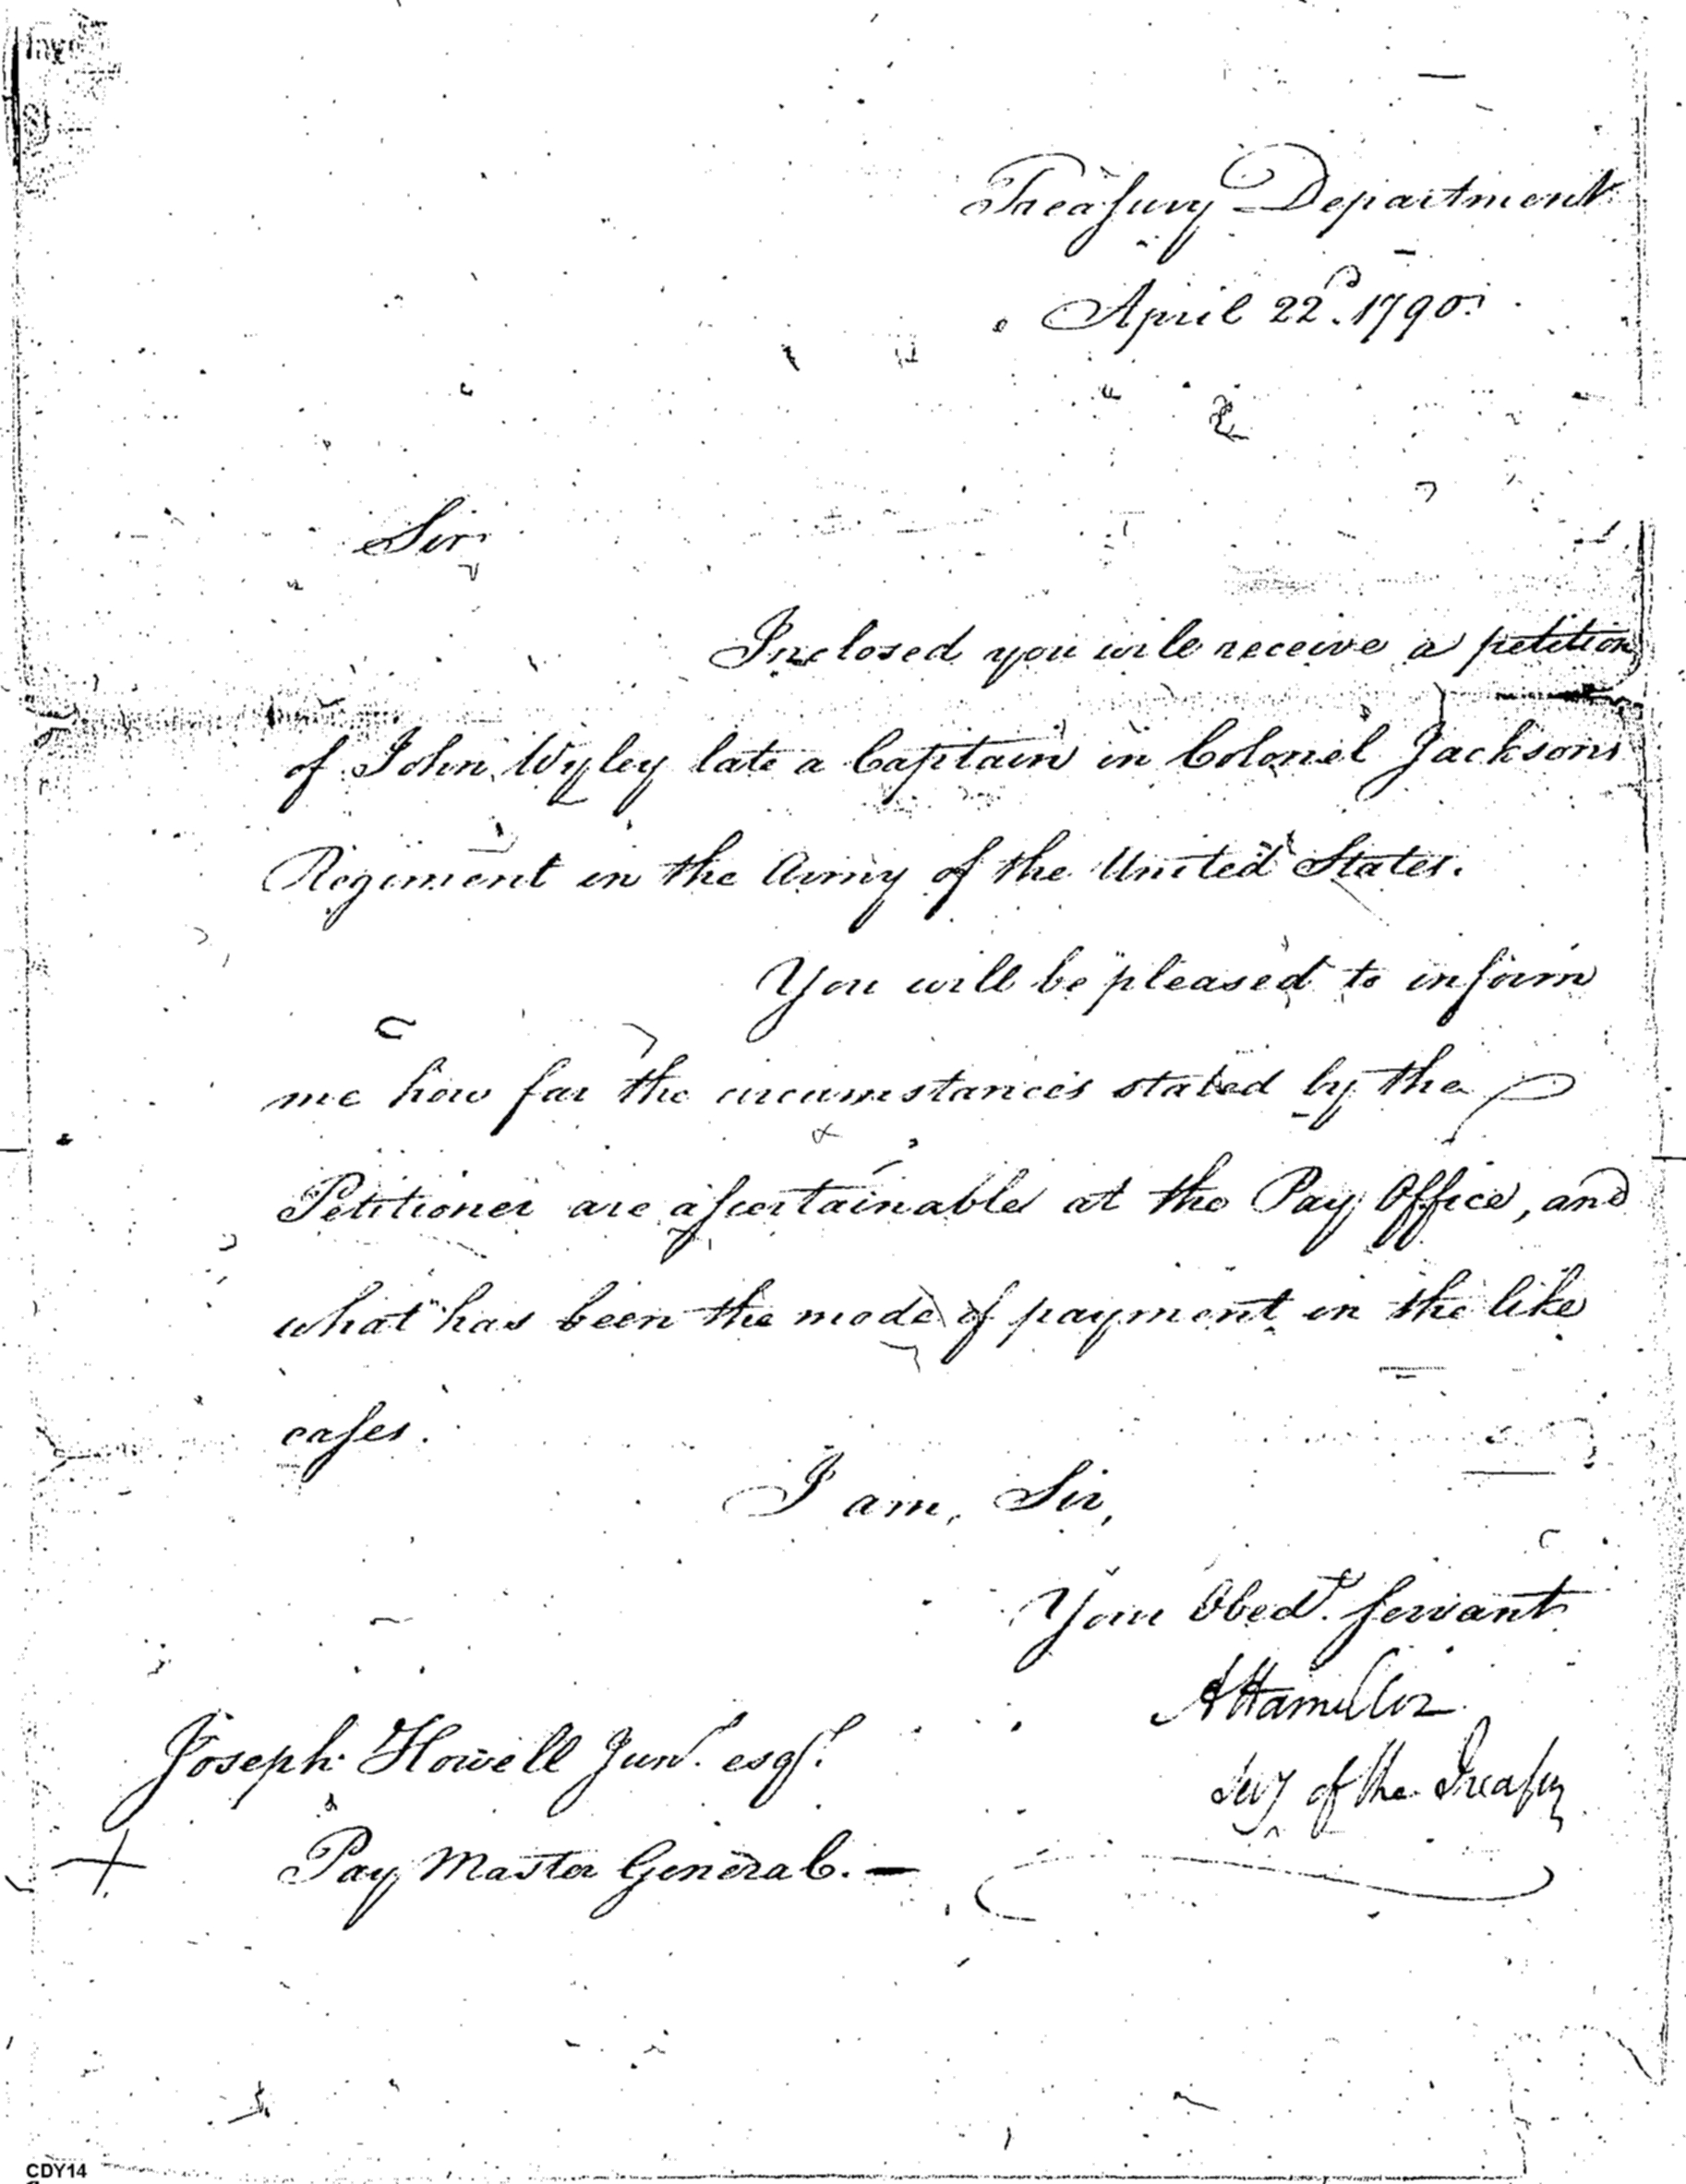 Treasury Department
April 22d. 1790.
Sir
Inclosed you will receive a petition
of John Wyley late a Captain in Colonel Jacksons
Regiment in the Army of the United States.
You will be pleased to inform
me how far the circumstances stated by the
Petitioner are ascertainable at the Pay Office, and
what has been the mode of payment in the like
cases.
I am, Sir,
Your Obedt. servant
A Hamilton
Secy of the Treasury
Joseph Howell Junr. esqr.
Pay Master General. —
CDY14